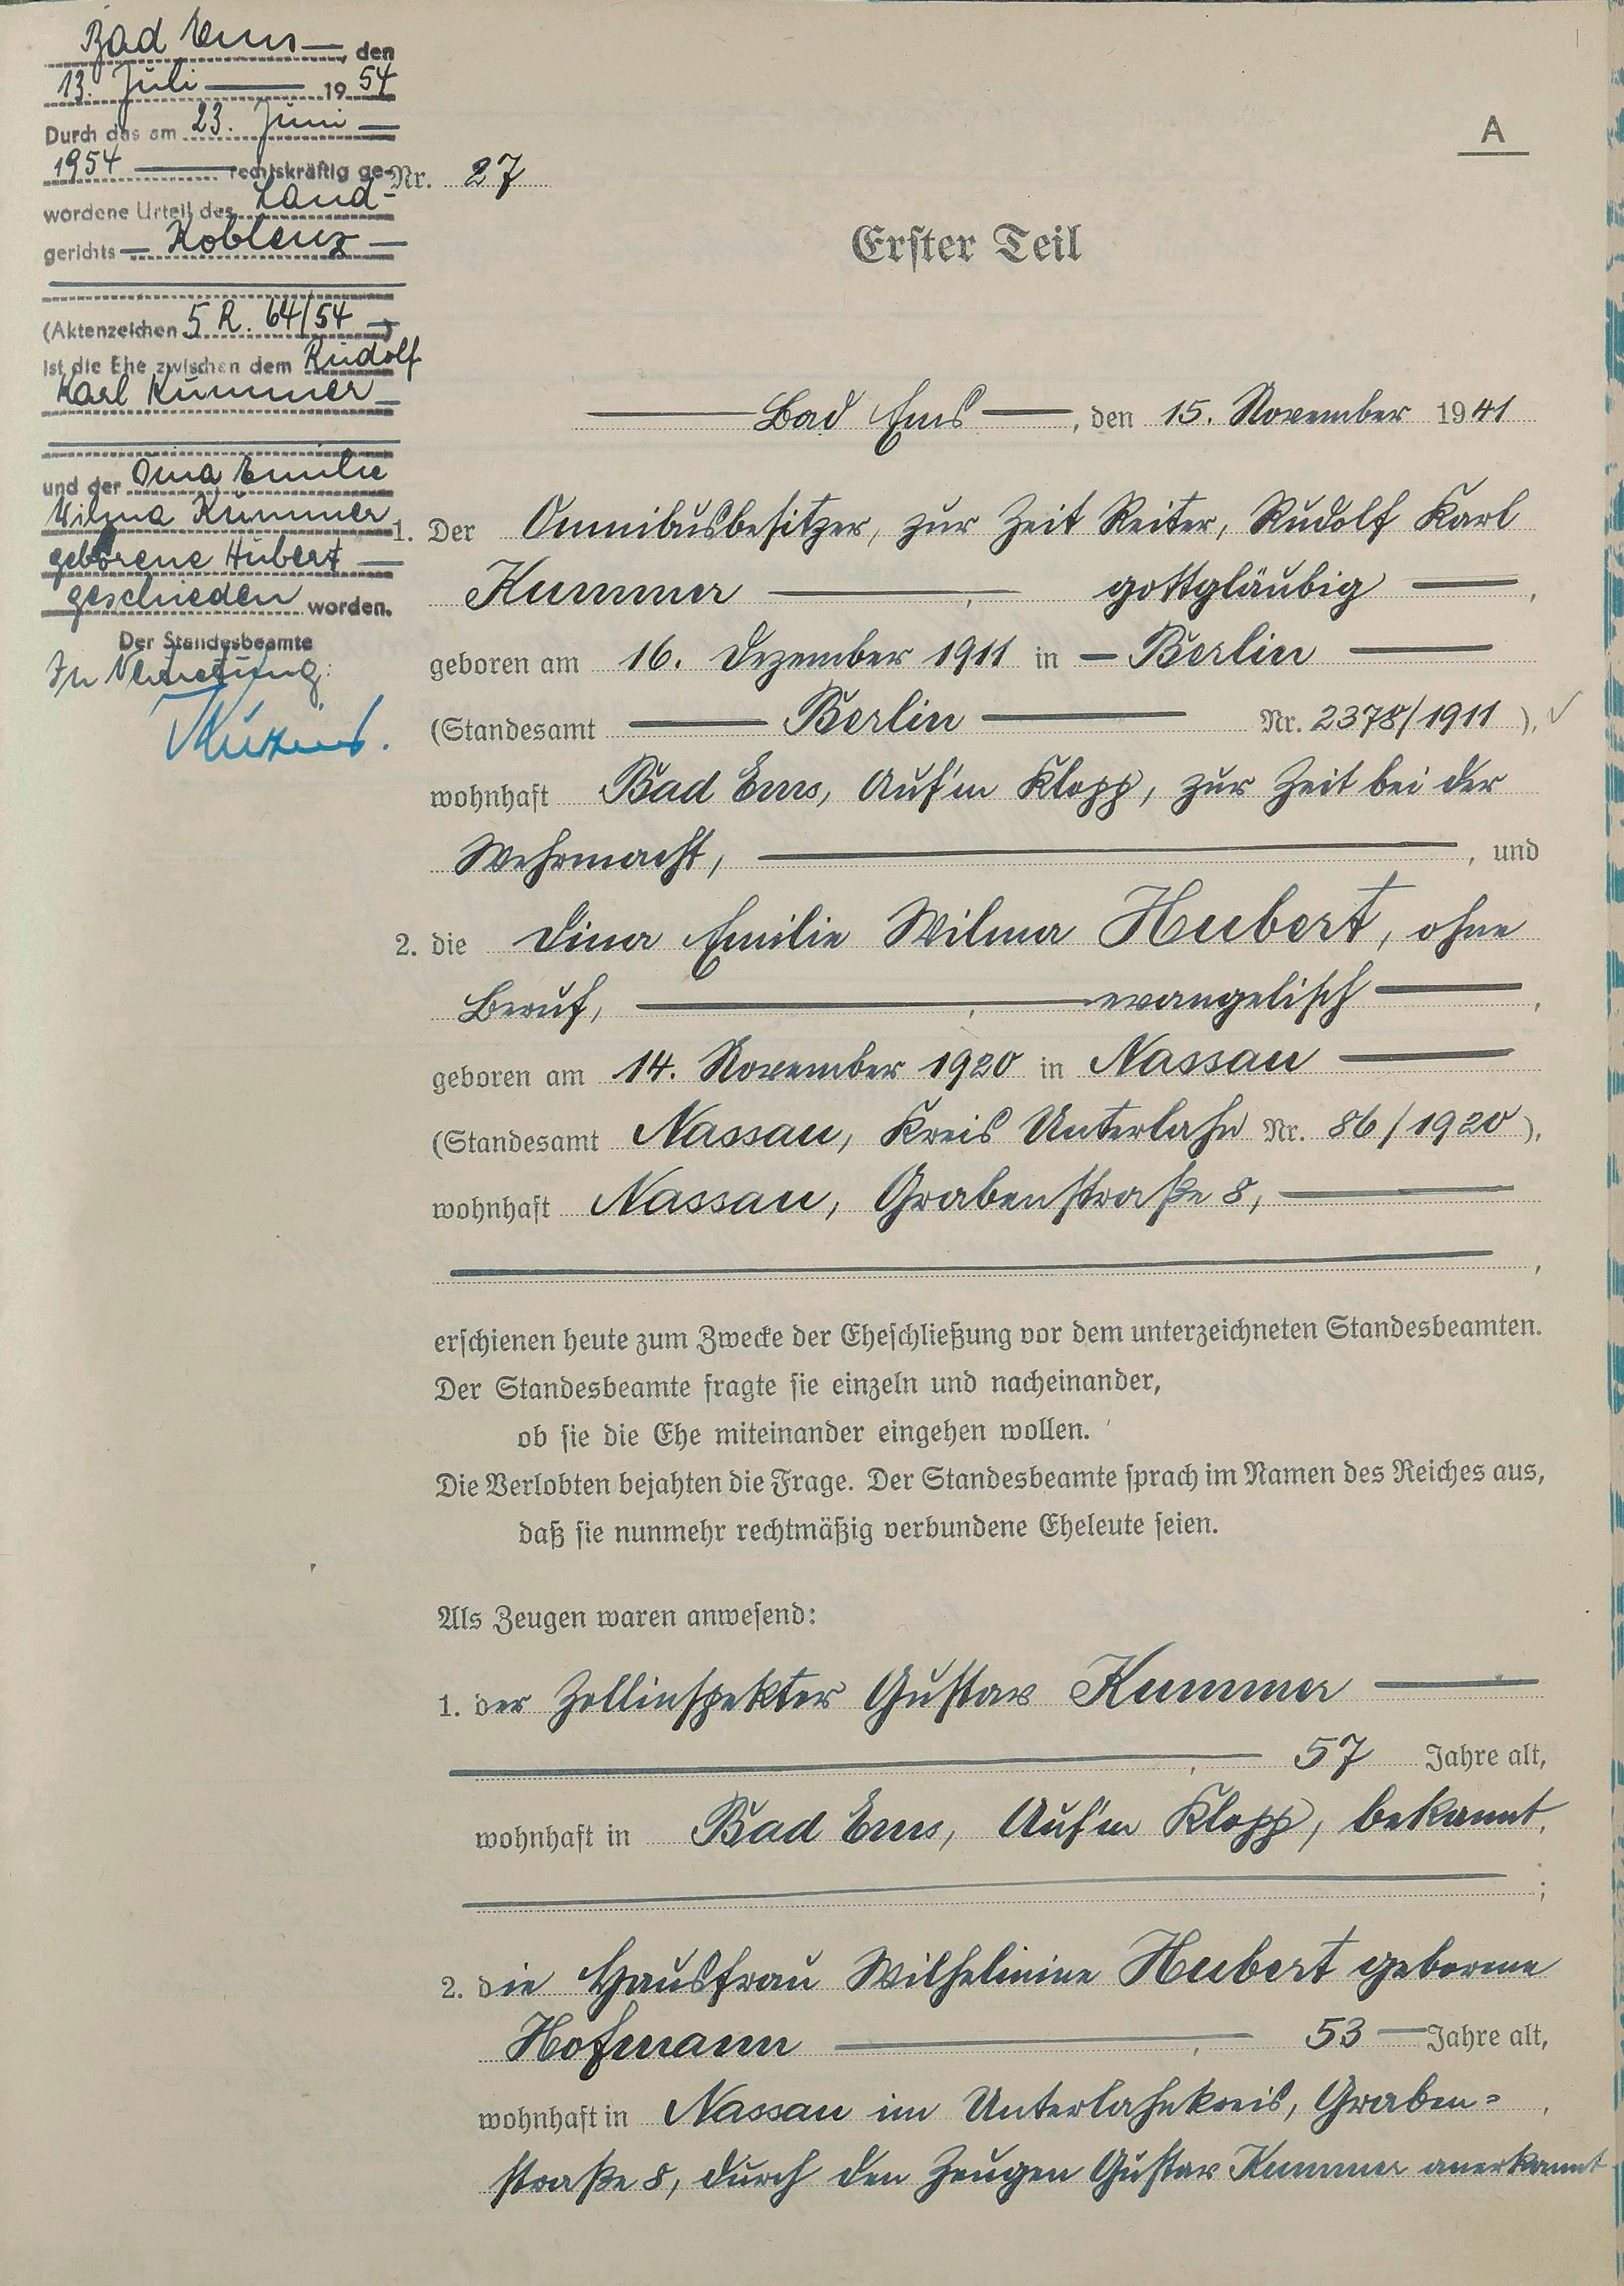 Bad Ems, den
13. Juli 1954
Durch das am 23. Juni
1954 rechtskräftig ge-
wordene Urteil des Land-
gerichts Koblenz
(Aktenzeichen 5 R. 64/54)
ist die Ehe zwischen dem Rudolf
Karl Kummer
und der Dina Emilie
Wilma Kummer
geborene Hubert
geschieden worden.
Der Standesbeamte
In Vertretung:
A
Nr. 27
Erster Teil
Bad Ems, den 15. November 1941
1. Der Omnibusbesitzer, zur Zeit Reiter, Rudolf Karl
Kummer, gottgläubig,
geboren am 16. Dezember 1911 in Berlin
(Standesamt Berlin Nr. 2378/1911),
wohnhaft Bad Ems, Auf'm Klopp, zur Zeit bei der
Wehrmacht, , und
2. die Dina Emilie Wilma Hubert, ohne
Beruf, , evangelisch,
geboren am 14. November 1920 in Nassau
(Standesamt Nassau, Kreis Unterlahn Nr. 86/1920),
wohnhaft Nassau, Grabenstraße 8,
,
erschienen heute zum Zwecke der Eheschließung vor dem unterzeichneten Standesbeamten.
Der Standesbeamte fragte sie einzeln und nacheinander,
ob sie die Ehe miteinander eingehen wollen.
Die Verlobten bejahten die Frage. Der Standesbeamte sprach im Namen des Reiches aus,
daß sie nunmehr rechtmäßig verbundene Eheleute seien.
Als Zeugen waren anwesend:
1. der Zollinspektor Gustav Kummer
, 57 Jahre alt,
wohnhaft in Bad Ems, Auf'm Klopp, bekannt,
;
2. die Hausfrau Wilhelmine Hubert geborene
Hofmann, 53 Jahre alt,
wohnhaft in Nassau im Unterlahnkreis, Graben=,
straße 8, durch den Zeugen Gustav Kummer anerkannt